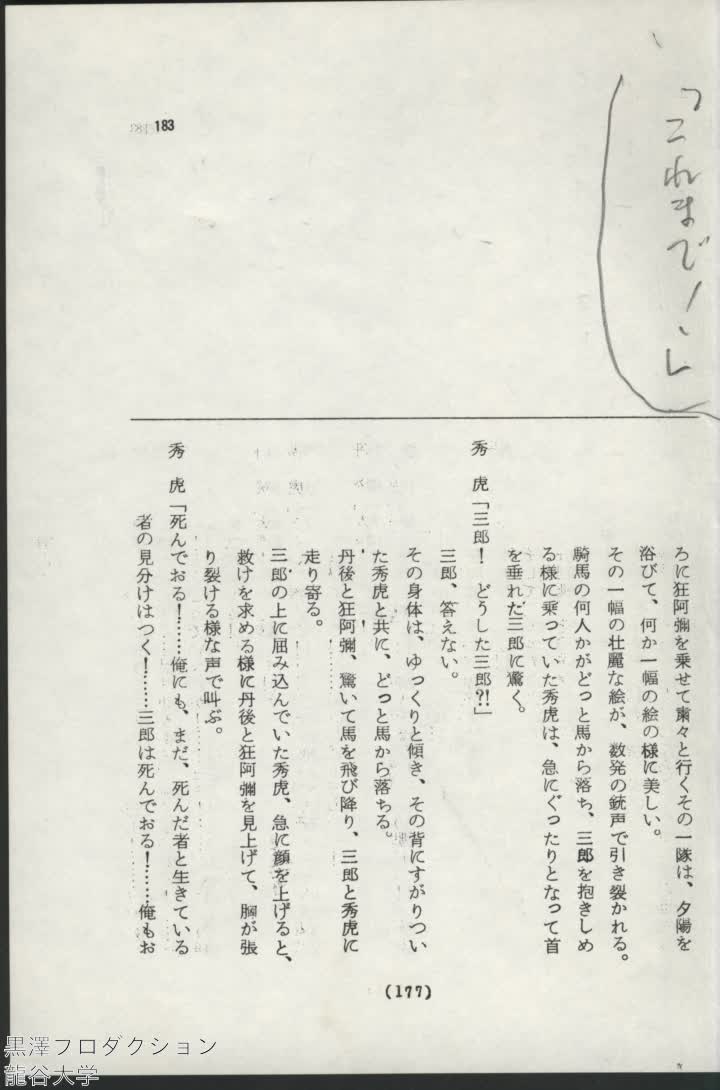 「これまで！」
ろに狂阿彌を乗せて粛々と行くその一隊は、夕陽を
浴びて、何か一幅の絵の様に美しい。
その一幅の壮麗な絵が、数発の銃声で引き裂かれる。
騎馬の何人かがどっと馬から落ち、三郎を抱きしめ
る様に乗っていた秀虎は、急にぐったりとなって首
を垂れた三郎に驚く。
秀　虎「三郎！　どうした三郎?!」
三郎、答えない。
その身体は、ゆっくりと傾き、その背にすがりつい
た秀虎と共に、どっと馬から落ちる。
丹後と狂阿彌、驚いて馬を飛び降り、三郎と秀虎に
走り寄る。
三郎の上に屈み込んでいた秀虎、急に顔を上げると、
救けを求める様に丹後と狂阿彌を見上げて、胸が張
り裂ける様な声で叫ぶ。
秀　虎「死んでおる！……俺にも、まだ、死んだ者と生きている
者の見分けはつく！……三郎は死んでおる！……俺もお
183
(177)
黒澤プロダクション
龍谷大学